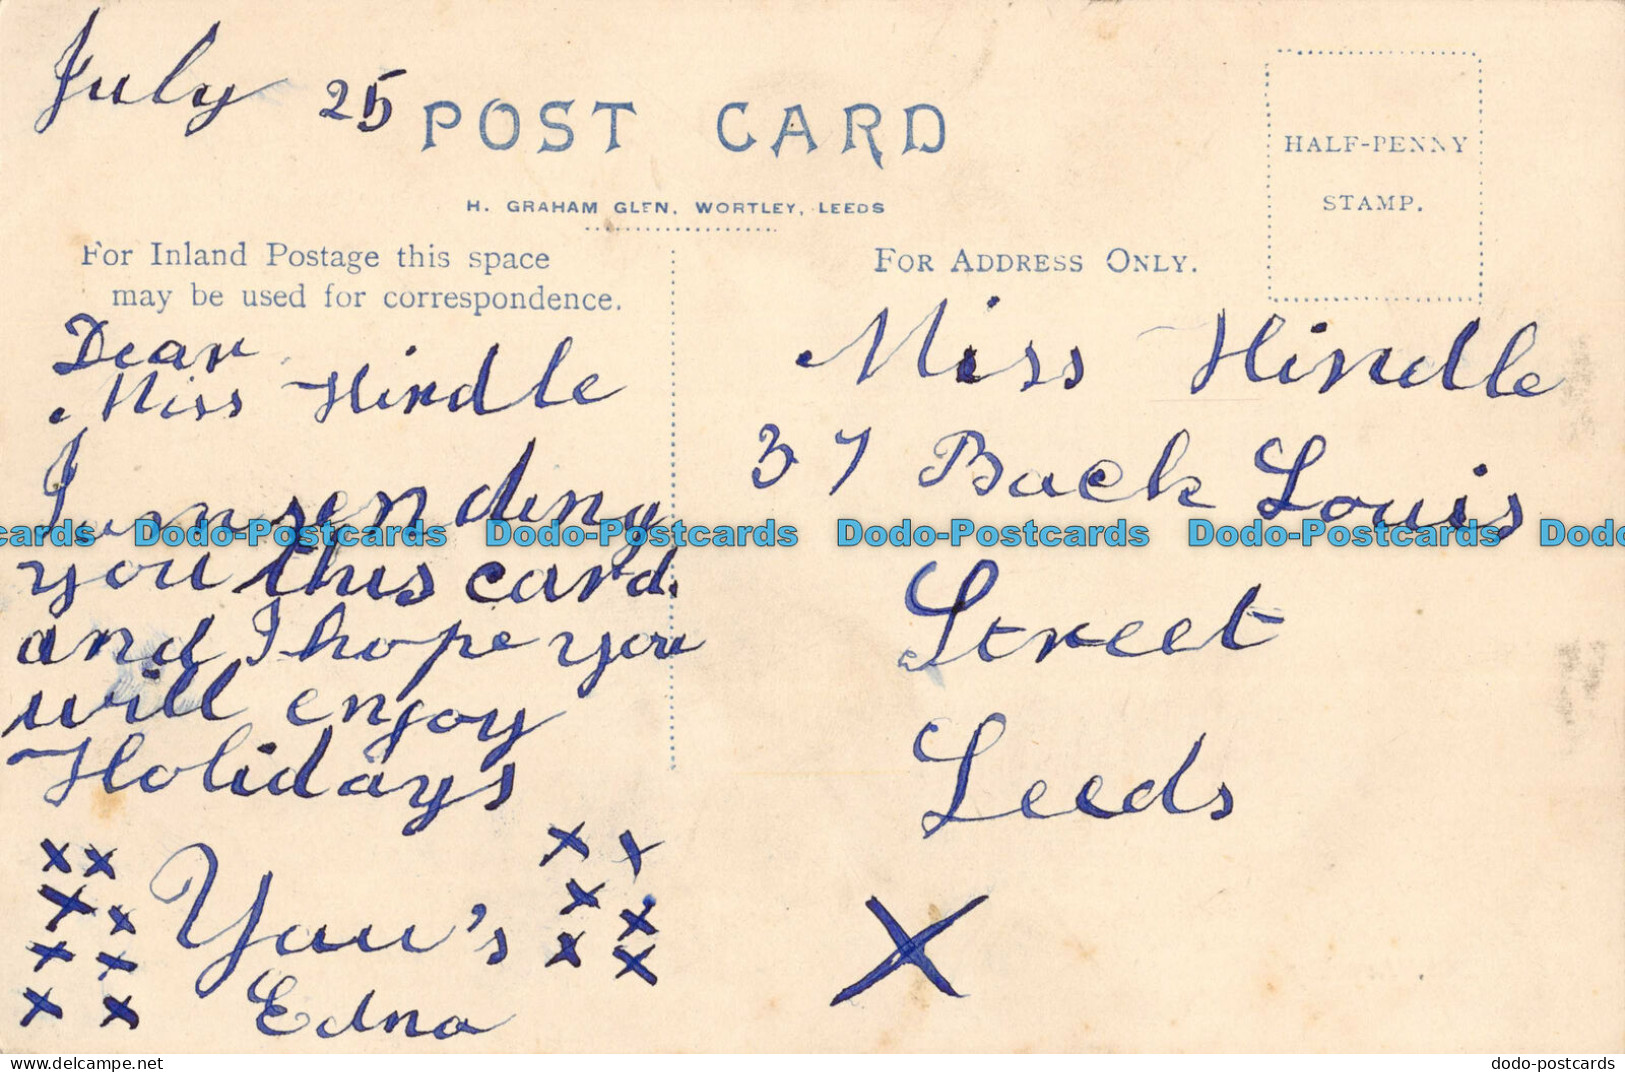 July 25
POST CARD
H. GRAHAM GLEN, WORTLEY, LEEDS
HALF-PENNY
STAMP.
For Inland Postage this space
may be used for correspondence.
FOR ADDRESS ONLY.
Dear
Miss Hindle
I am sending
you this card.
and I hope you
will enjoy
Holidays
Your's
Edna
x x x x x x x x
x x x x x x x
Miss Hindle
37 Back Louis
Street
Leeds
X
Dodo-Postcards Dodo-Postcards Dodo-Postcards Dodo-Postcards
www.delcampe.net
dodo-postcards